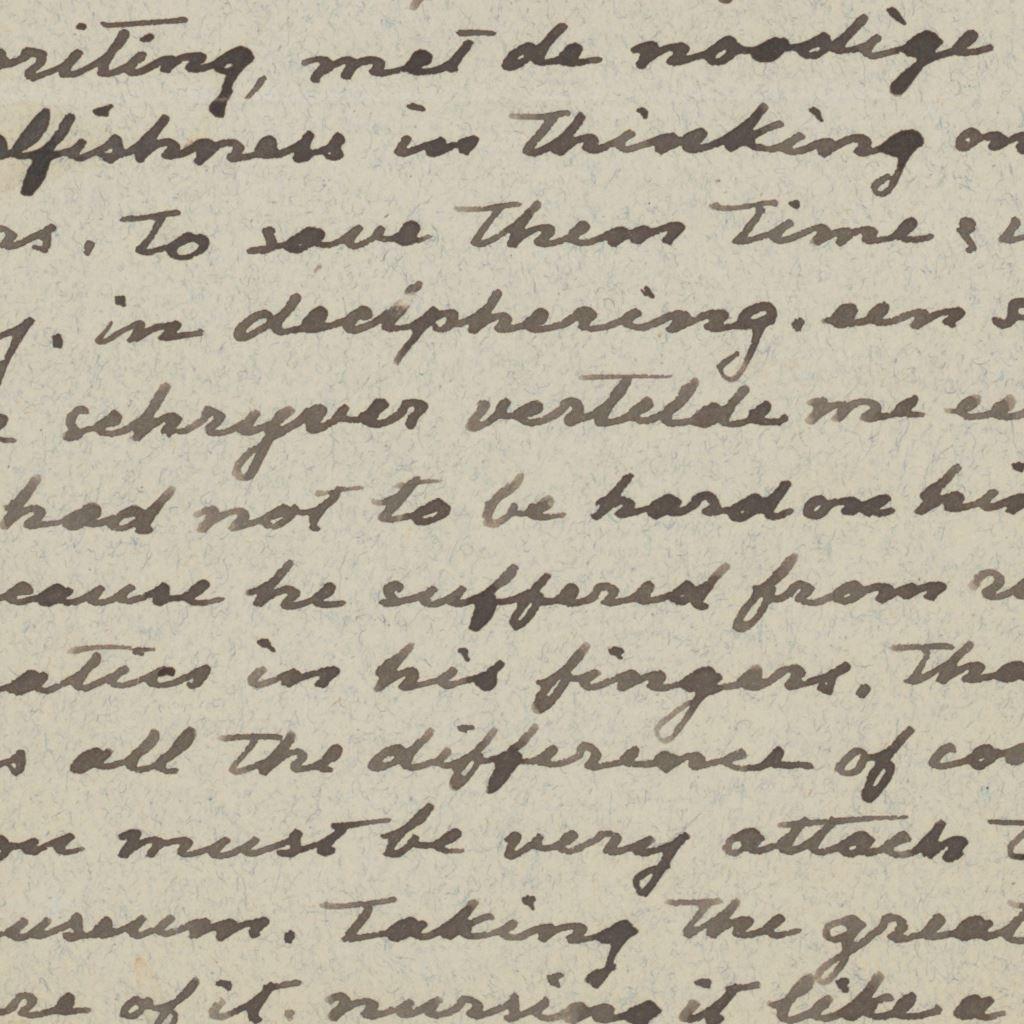 writing, met de noodige
elfishness in thinking on
rs. To save them time &
y. in deciphering. een s
schryver vertelde me ee
had not to be hard on him
ecause he suffered from
atics in his fingers. Tha
s all the difference of cou
ou must be very attach t
useum. Taking the great
re of it. nursing it like a